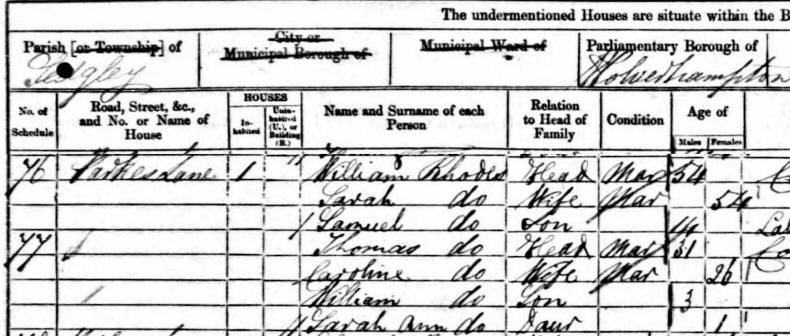 The undermentioned Houses are situate within the B
Parish [or Township] of
City or
Municipal Borough of
Municipal Ward of
Parliamentary Borough of
Sedgley
Wolverhampton
No. of Schedule
Road, Street, &c., and No. or Name of House
HOUSES
In-habited
Unin-habited (U.), or Building (B.)
Name and Surname of each Person
Relation to Head of Family
Condition
Age of
Males Females
76 Parkes Lane 1 William Rhodes Head Mar 54
Sarah do Wife Mar 54
Samuel do Son 14 Lab
77 Thomas do Head Mar 31
Caroline do Wife Mar 26
William do Son 3
Sarah Ann do Daur 1